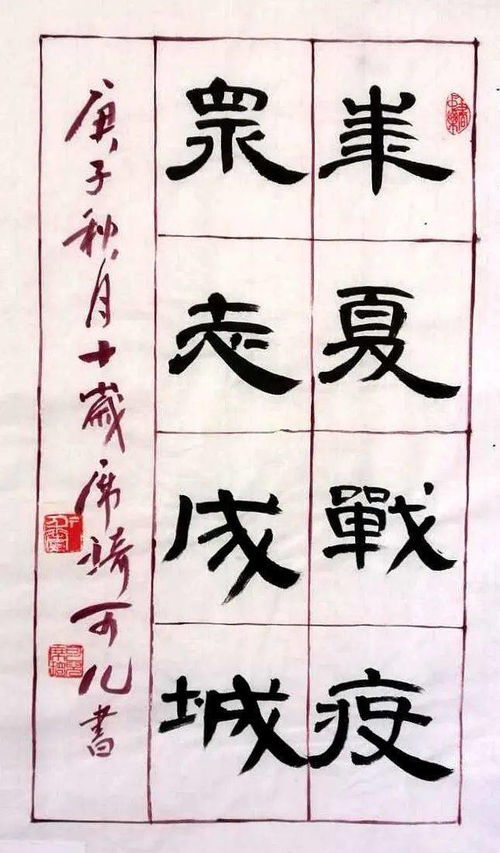 華夏戰疫
眾志成城
庚子秋月十歲席可儿書